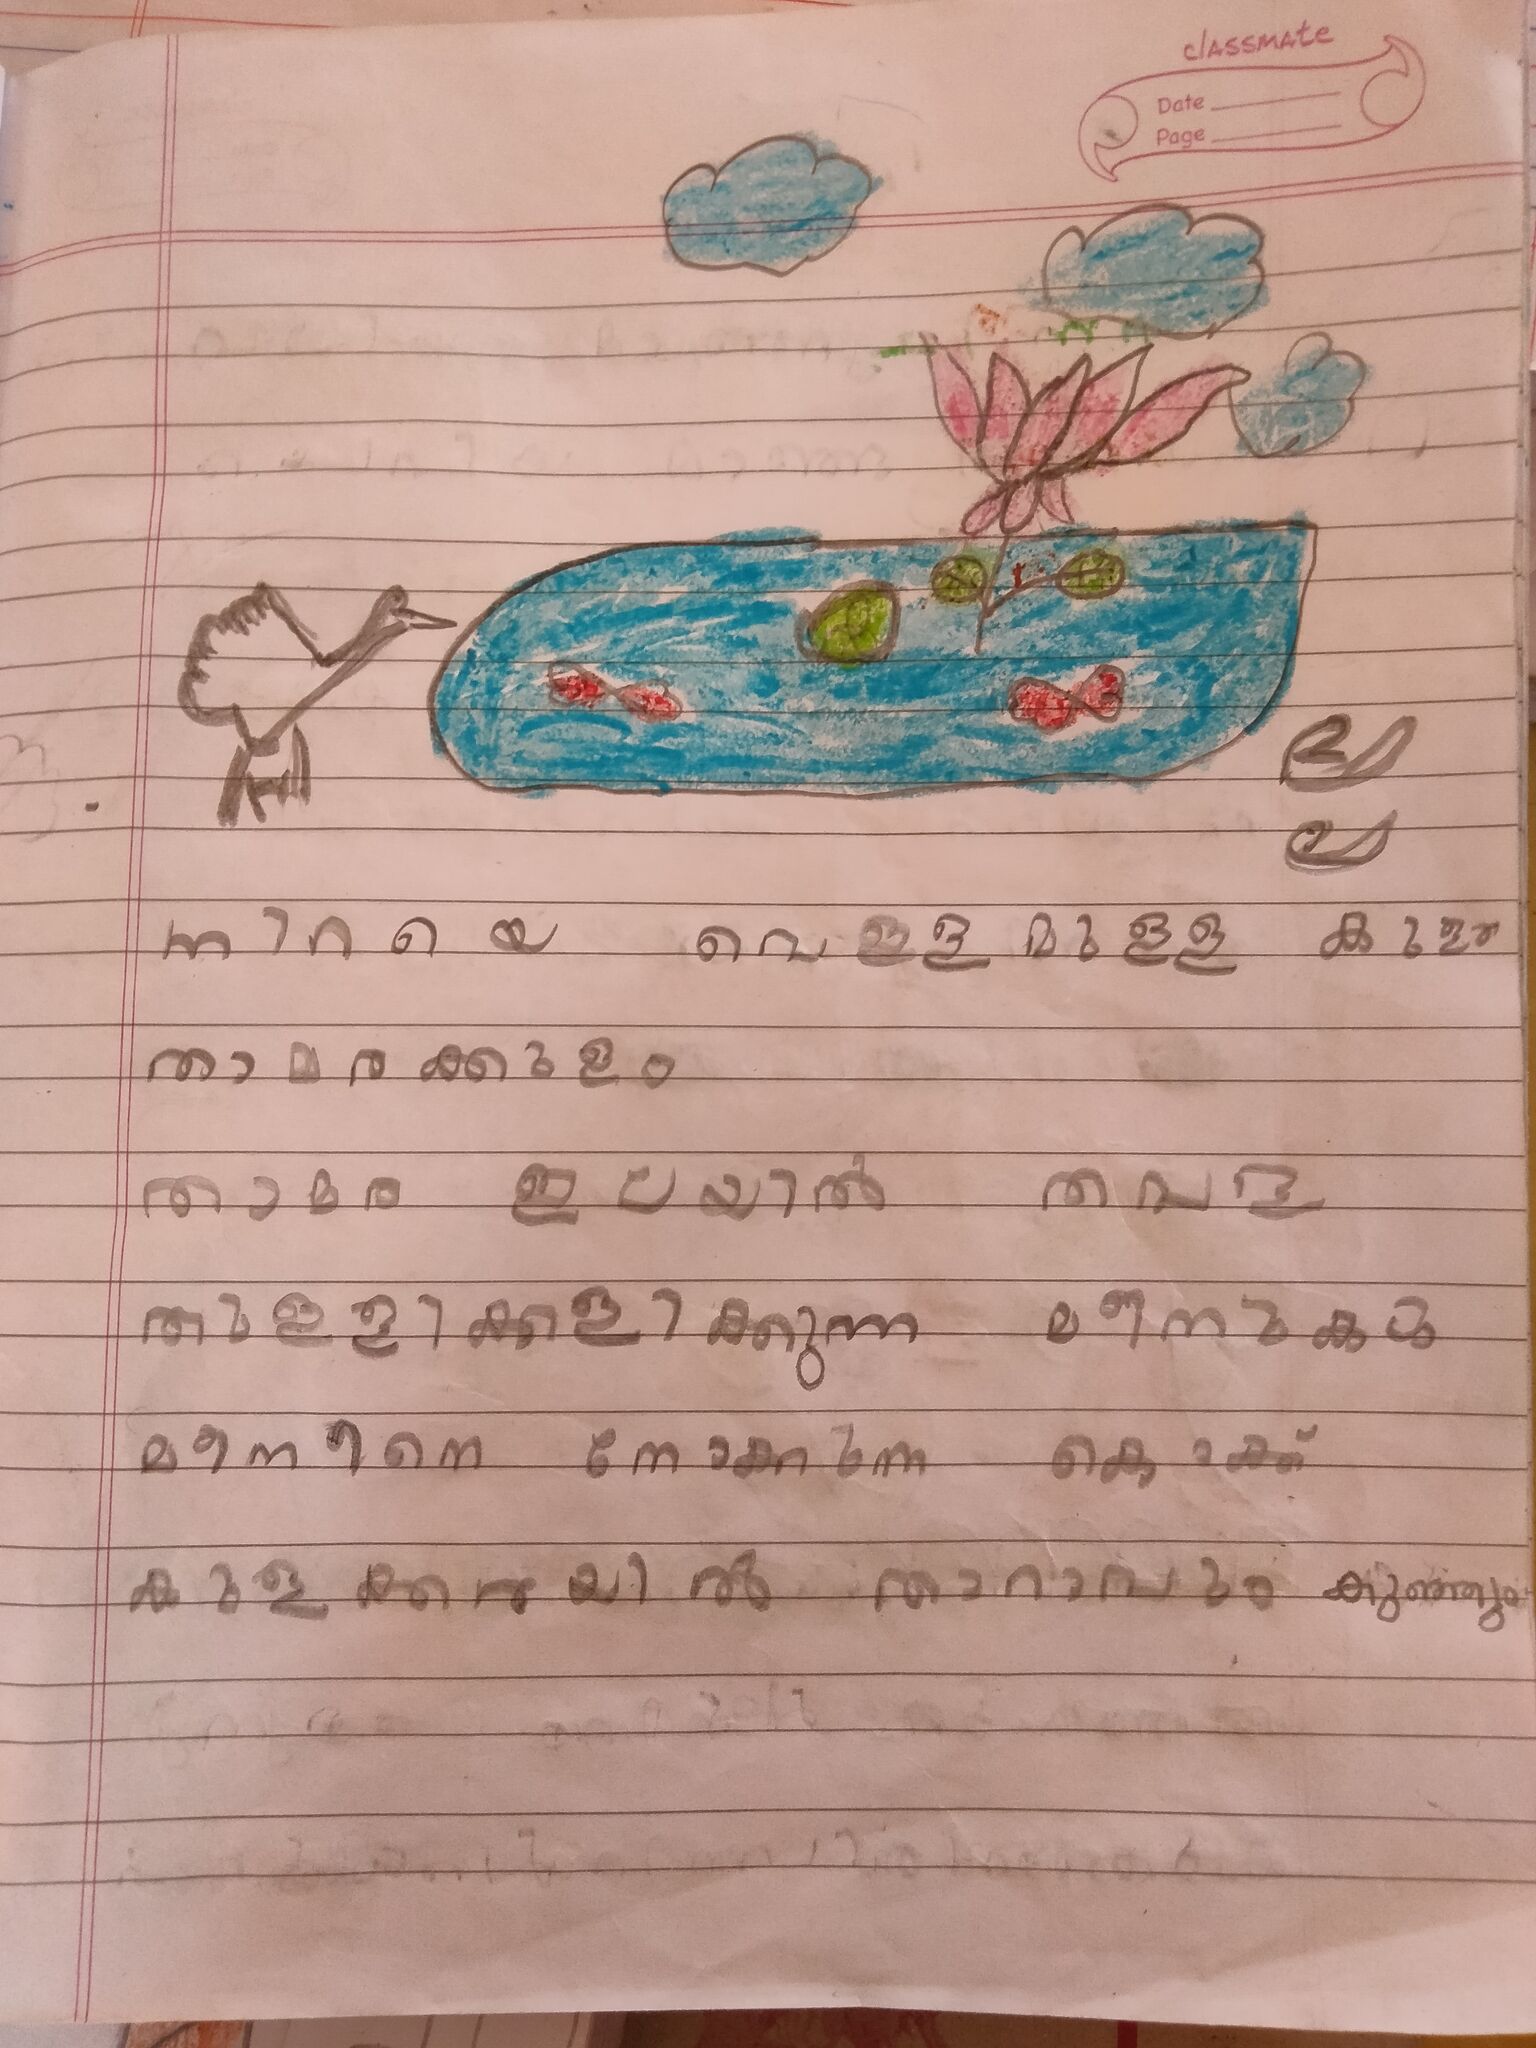 classmate
Date
Page
നിറയെ വെള്ളമുള്ള കുളം
താമരക്കുളം
താമര ഇലയിൽ തവള
തുള്ളിക്കളിക്കുന്ന മീനുകൾ
മീനിനെ നോക്കുന്ന കൊക്ക്
കുളക്കരയിൽ താറാവും കുഞ്ഞും